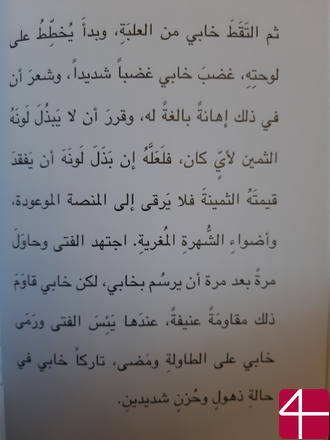 ثم التَقَطَ خابي من العلبَةِ، وبدأَ يُخطِّطُ على
لوحتِهِ، غضبَ خابي غضباً شديداً، وشعرَ أن
في ذلك إهانةً بالغةً له، وقررَ أن لا يَبذُلَ لَونَهُ
الثمين لأيٍّ كان، فلَعَلَّهُ إن بَذَلَ لَونَهَ أن يَفقدَ
قيمتَهُ الثمينةَ فلا يَرقى إلى المنصة الموعودة،
وأضواءِ الشُّهرةِ المُغريةِ. اجتهد الفتى وحاوَلَ
مرةً بعد مرة أن يرسُم بخابي، لكن خابي قاوَمَ
ذلك مقاومَةً عنيفةً، عندَها يَئِسَ الفتى ورَمَى
خابي على الطاولةِ ومَضى، تاركاً خابي في
حالةِ ذهولٍ وحُزنٍ شديدينِ.
4